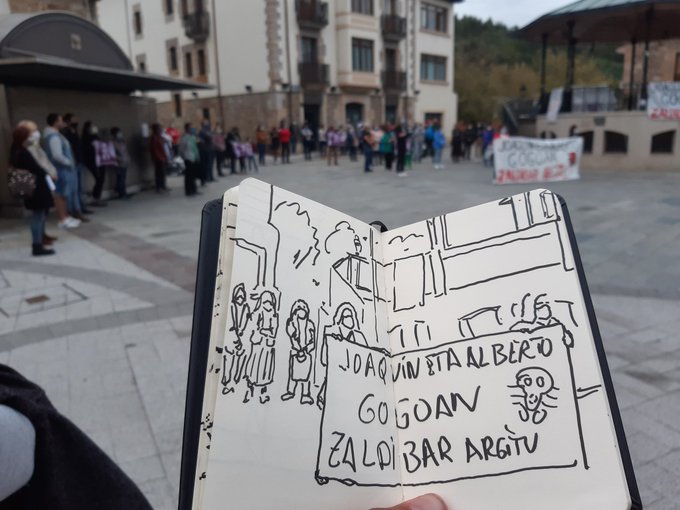 GOGOAN
JOAQUIN ETA ALBERTO
GOGOAN
ZALDIBAR ARGITU